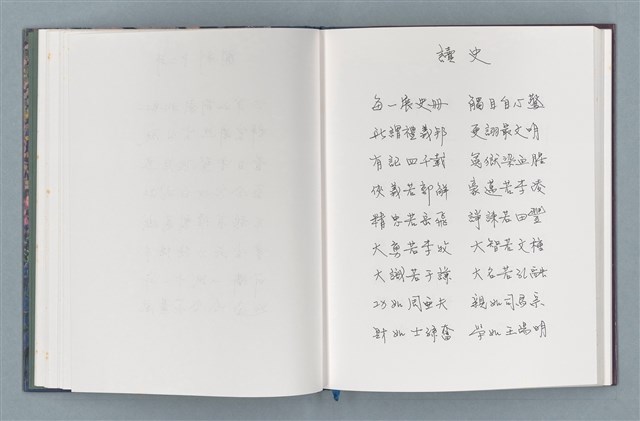 讀史
每一展史册 觸目自心驚
此謂禮義邦 更詡最文明
有記四千載 冤獄染血腥
俠義若郭解 豪邁若李凌
精忠若岳飛 諍諫若田豐
大勇若李牧 大智若文種
大識若于謙 大名若孔融
功如周亞夫 親如司馬
財如士孫奮 學如王陽明